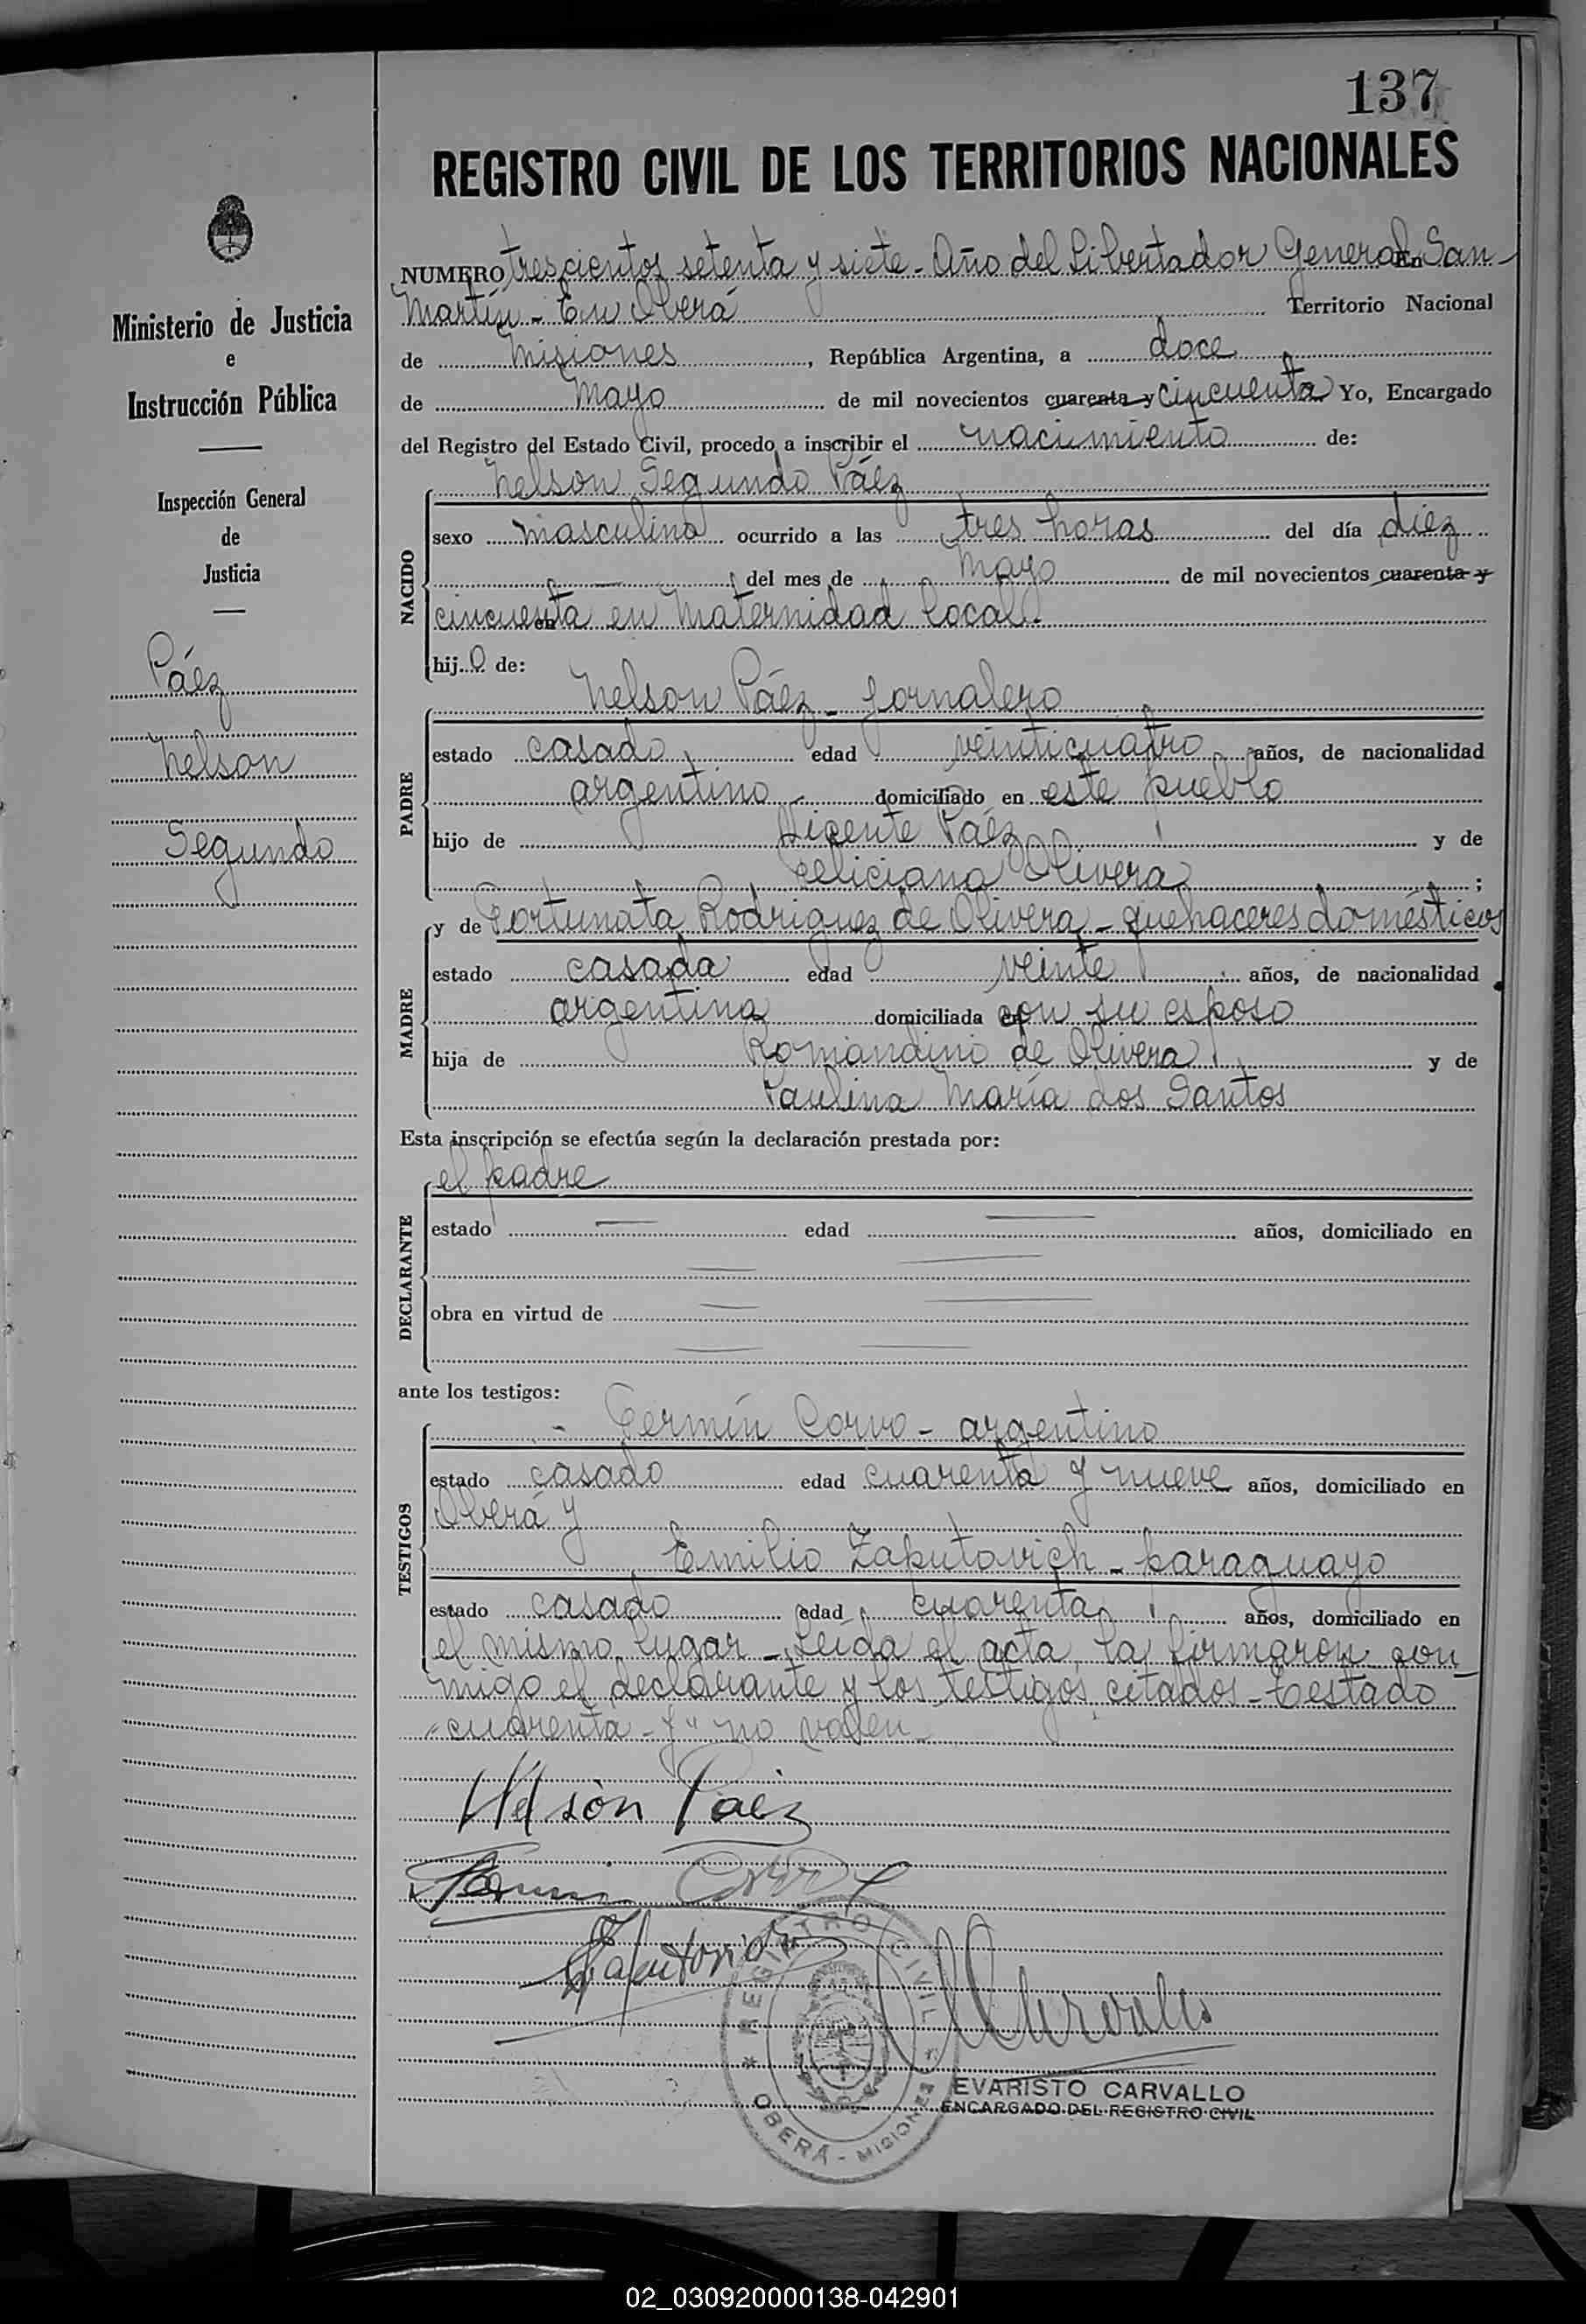 137
REGISTRO CIVIL DE LOS TERRITORIOS NACIONALES
NUMERO trescientos setenta y siete - Año del Libertador General En San
Martín - En Oberá Territorio Nacional
de Misiones, República Argentina, a doce
de Mayo de mil novecientos cuarenta y cincuenta Yo, Encargado
del Registro del Estado Civil, procedo a inscribir el nacimiento de:
Ministerio de Justicia
e
Instrucción Pública
Inspección General
de
Justicia
Páez
Nelson
Segundo
NACIDO
Nelson Segundo Páez
sexo masculino ocurrido a las tres horas del día diez
del mes de Mayo de mil novecientos cuarenta y
cincuenta en Maternidad local.
hijo de:
PADRE
Nelson Páez - jornalero
estado casado edad veinticuatro años, de nacionalidad
argentino domiciliado en este pueblo
hijo de Vicente Páez y de
Feliciana Olivera ;
MADRE
y de Fortunata Rodriguez de Olivera - quehaceres domésticos
estado casada edad veinte años, de nacionalidad
argentina domiciliada en con su esposo
hija de Romandino de Olivera y de
Paulina María dos Santos
Esta inscripción se efectúa según la declaración prestada por:
DECLARANTE
el padre
estado — edad — años, domiciliado en
obra en virtud de
ante los testigos:
TESTIGOS
- Fermín Corvo - argentino
estado casado edad cuarenta y nueve años, domiciliado en
Oberá y
Emilio Zaputovich - paraguayo
estado casado edad cuarenta años, domiciliado en
el mismo lugar - Leída el acta, la firmaron con-
migo el declarante y los testigos citados - Testado
"cuarenta - y" no valen -
Nelsòn Paèz
Zaputovich
REGISTRO CIVIL
OBERÁ - MISIONES
EVARISTO CARVALLO
ENCARGADO DEL REGISTRO CIVIL
02_030920000138-042901